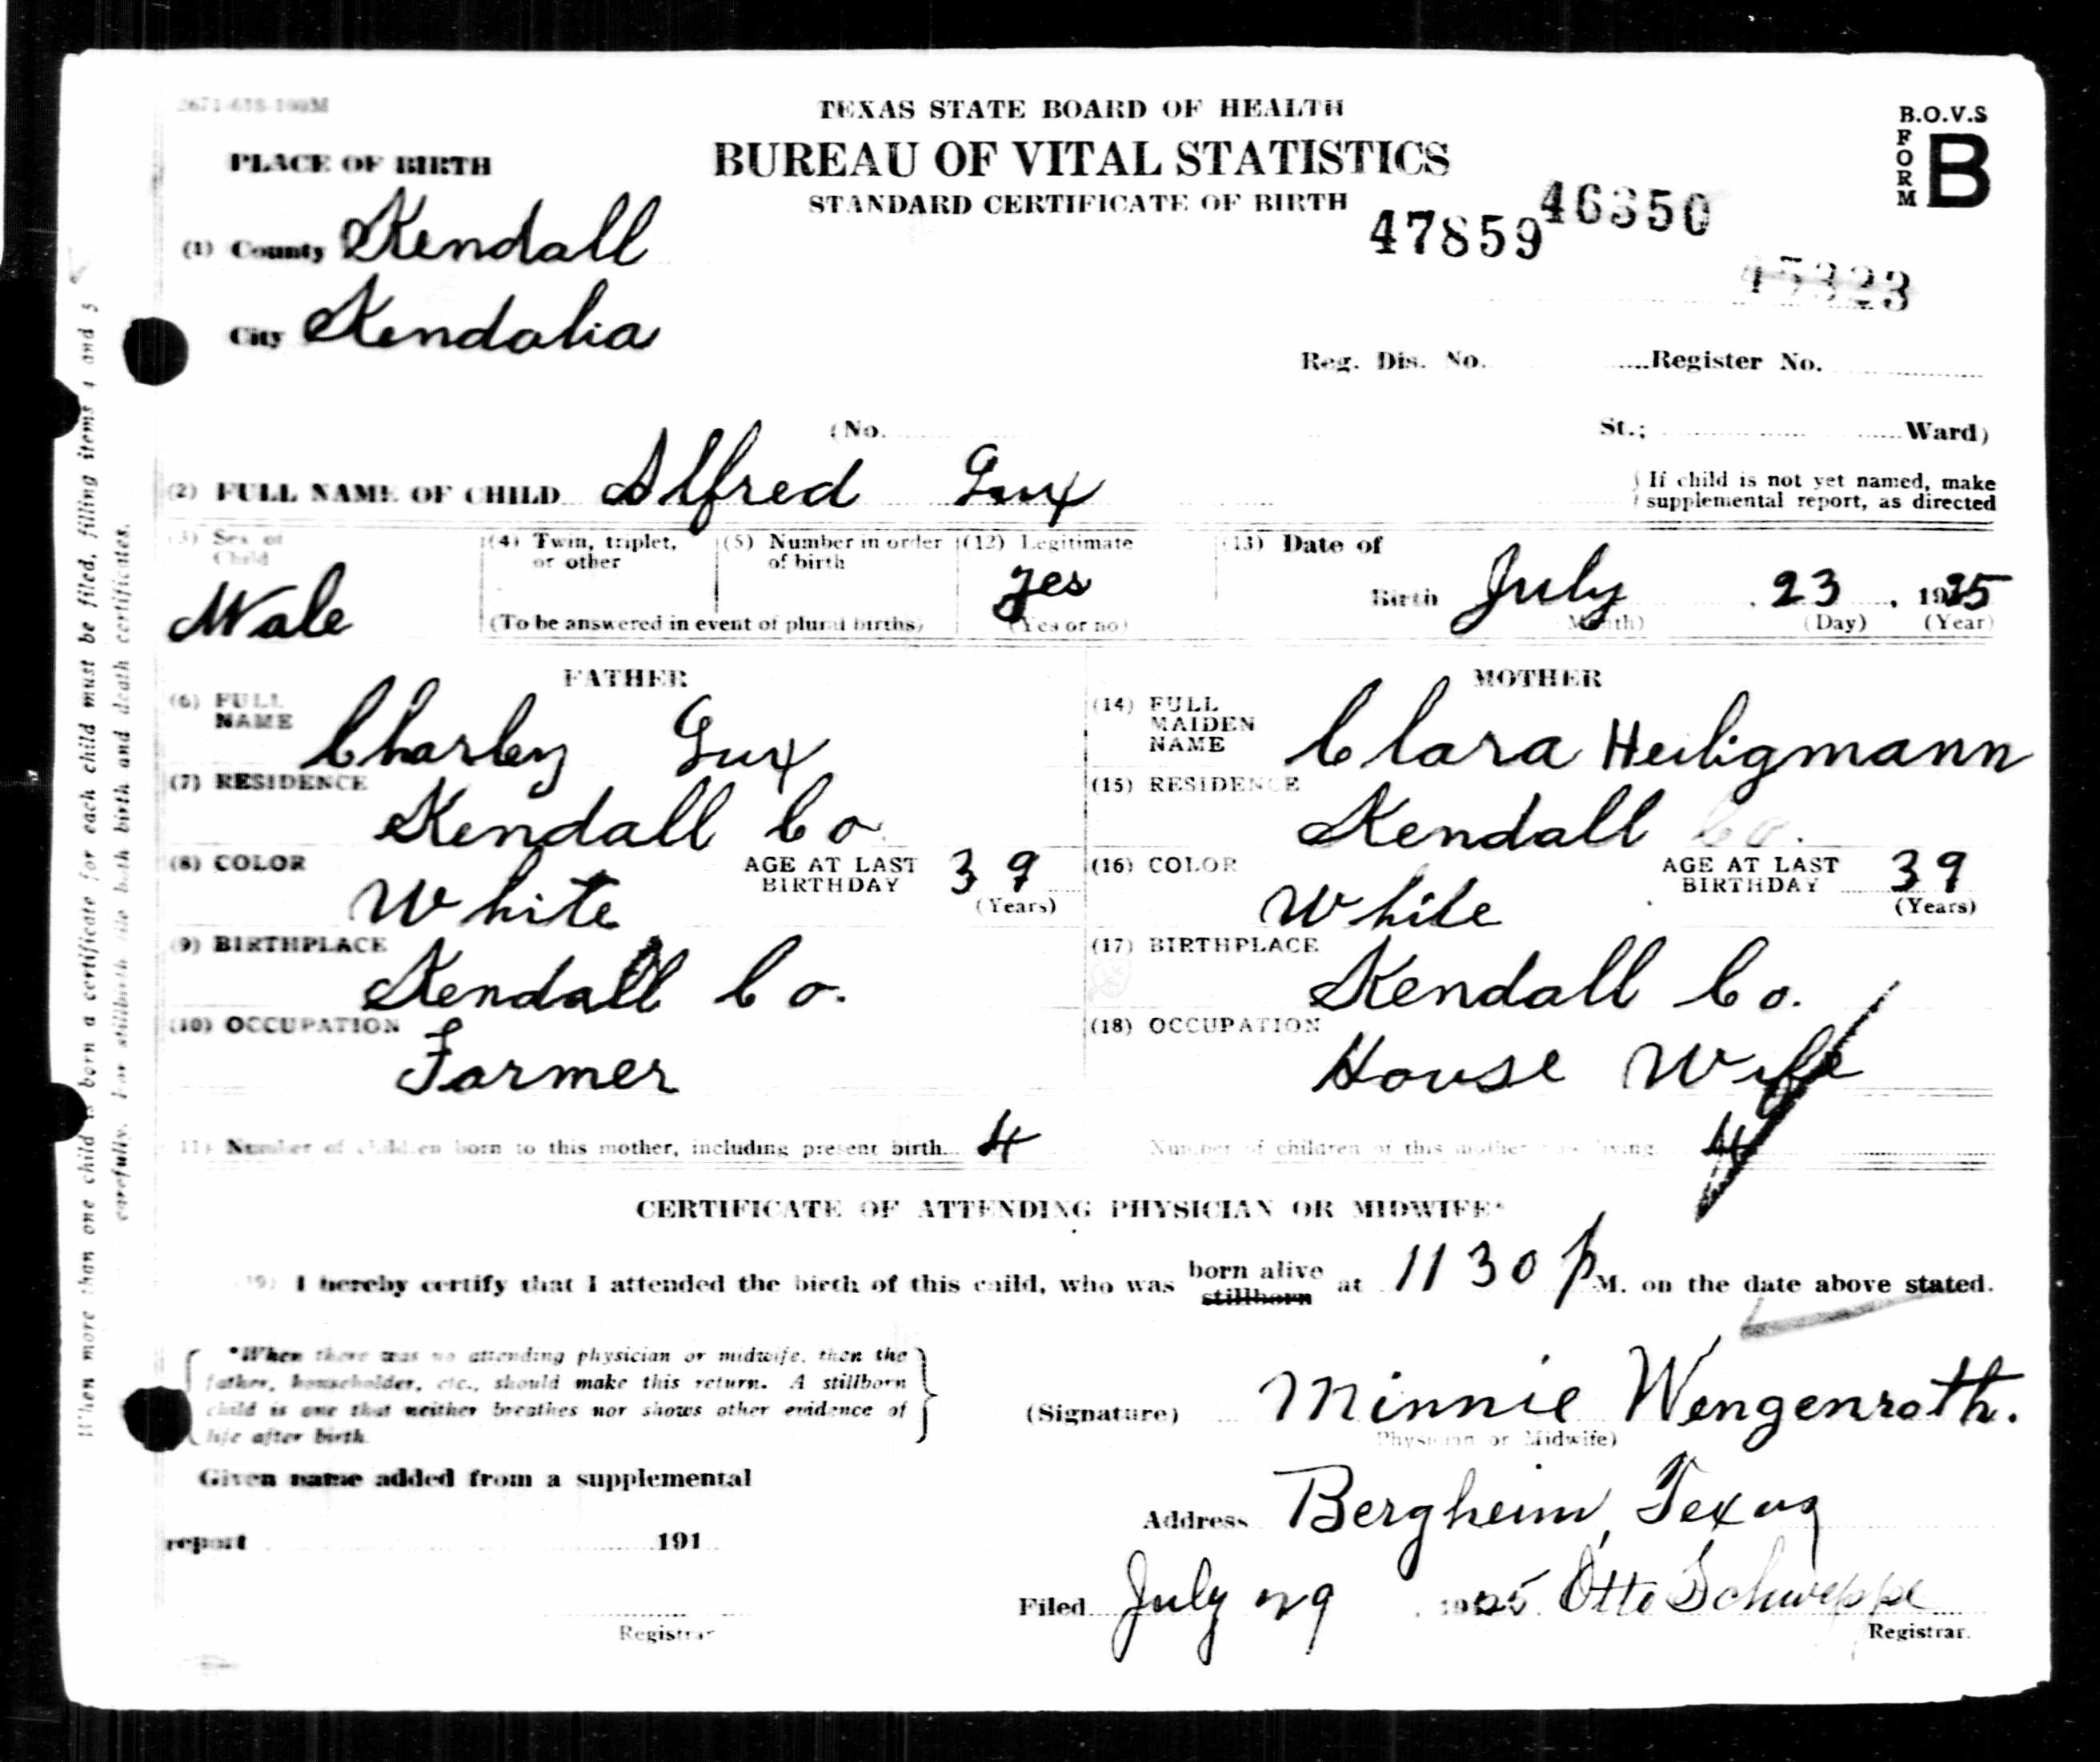 2671-618-100M
TEXAS STATE BOARD OF HEALTH
BUREAU OF VITAL STATISTICS
STANDARD CERTIFICATE OF BIRTH
B.O.V.S
FORM B
47859 46350
45323
PLACE OF BIRTH
(1) County Kendall
City Kendalia
Reg. Dis. No. Register No.
(No. St.; Ward)
(2) FULL NAME OF CHILD Alfred Lux
If child is not yet named, make
supplemental report, as directed
(3) Sex of Child Male
(4) Twin, triplet, or other
(5) Number in order of birth
(To be answered in event of plural births)
(12) Legitimate yes
(Yes or no)
(13) Date of Birth July 23, 1925
(Month) (Day) (Year)
FATHER
(6) FULL NAME Charley Lux
(7) RESIDENCE Kendall Co.
(8) COLOR White AGE AT LAST BIRTHDAY 39
(Years)
(9) BIRTHPLACE Kendall Co.
(10) OCCUPATION Farmer
MOTHER
(14) FULL MAIDEN NAME Clara Heiligmann
(15) RESIDENCE Kendall Co.
(16) COLOR White AGE AT LAST BIRTHDAY 39
(Years)
(17) BIRTHPLACE Kendall Co.
(18) OCCUPATION House Wife
(11) Number of children born to this mother, including present birth 4 Number of children of this mother now living 4
CERTIFICATE OF ATTENDING PHYSICIAN OR MIDWIFE*
(19) I hereby certify that I attended the birth of this child, who was born alive stillborn at 11 30 P M. on the date above stated.
*When there was no attending physician or midwife, then the
father, householder, etc., should make this return. A stillborn
child is one that neither breathes nor shows other evidence of
life after birth.
(Signature) Minnie Wengenroth.
(Physician or Midwife)
Given name added from a supplemental
report 191
Registrar
Address Bergheim, Texas
Filed July 29, 1925 Otto Schweppe
Registrar.
When more than one child is born a certificate for each child must be filed, filling items 4 and 5
carefully. For stillbirth file both birth and death certificates.